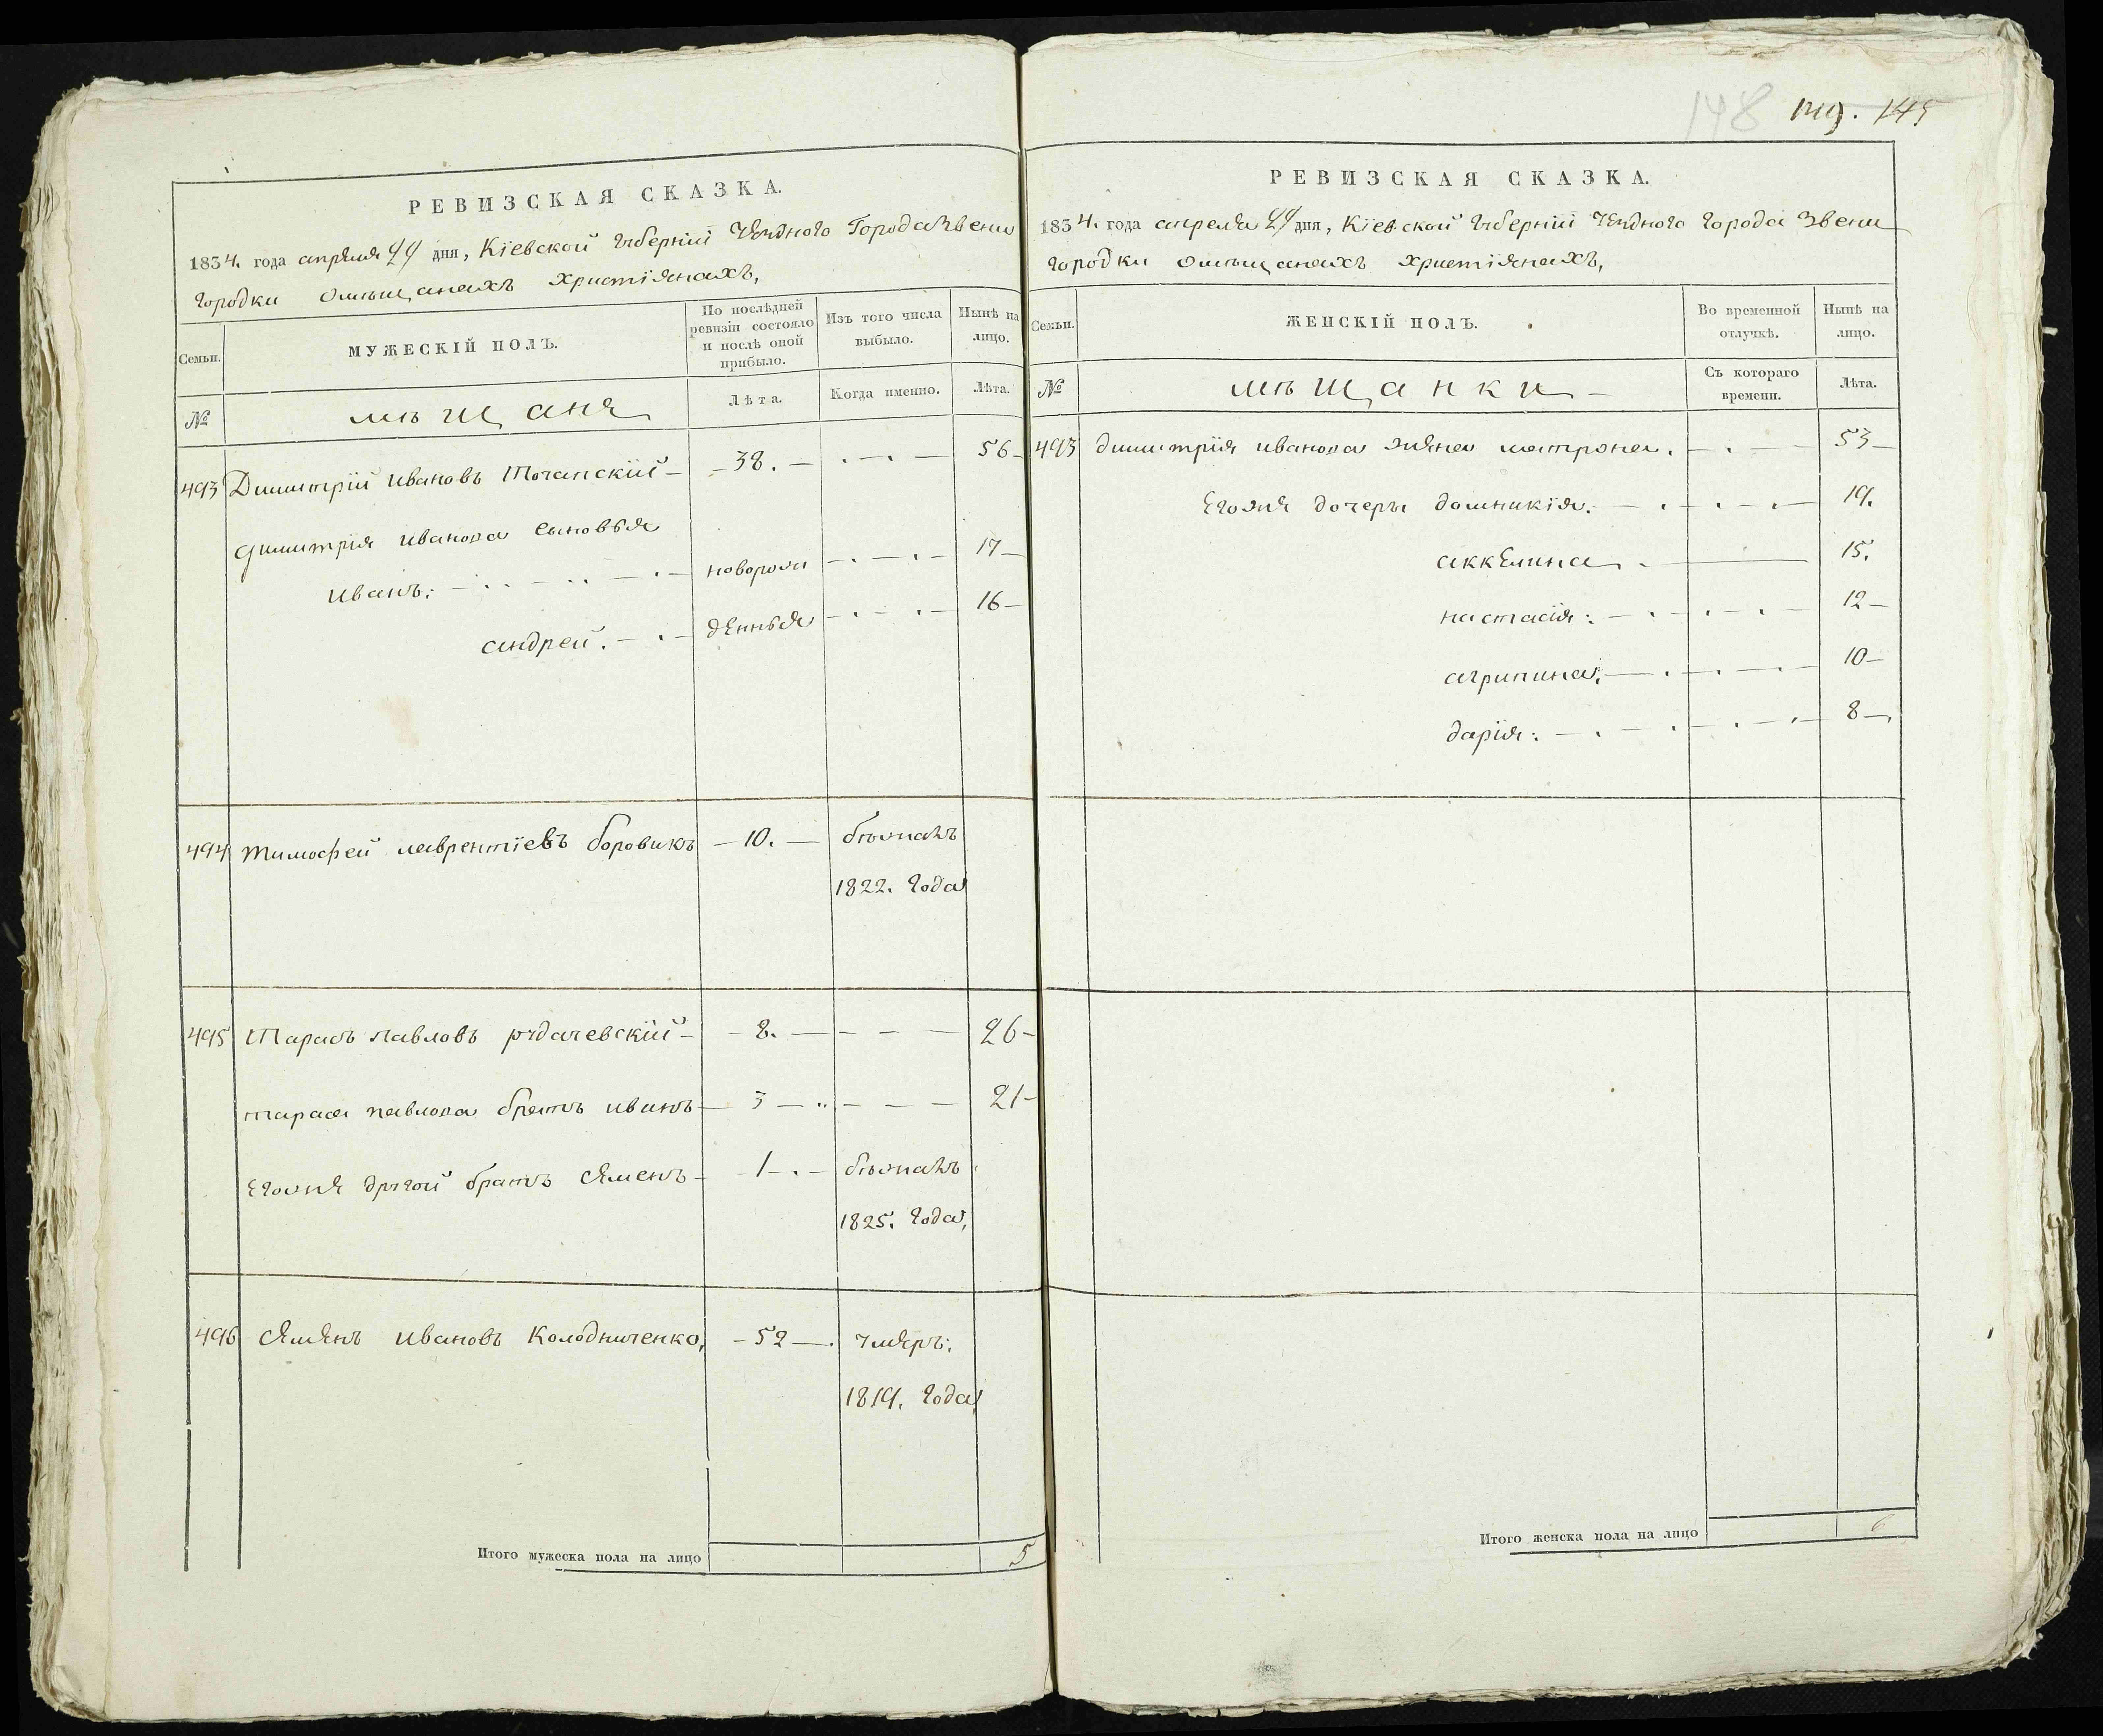 148 149. 145
РЕВИЗСКАЯ СКАЗКА.
1834. года апреля 24 дня, Кіевской губерніи уезднаго Города Звени
городки омѣщанахъ христіянахъ,
Семьи. МУЖЕСКІЙ ПОЛЪ. По послѣдней ревизіи состояло и послѣ оной прибыло. Изъ того числа выбыло. Нынѣ на лицо.
№ мѣщане Лѣта. Когда именно. Лѣта.
493 Димитрій Ивановъ Точанскій 38. 56
димитрія иванова сыновья
иванъ: новорож 17
андрей. денные 16
494 тимофей лаврентіевъ боровикъ 10. бѣжалъ
1822. года
495 Тарасъ павловъ рудачевскій 8. 26
тараса павлова братъ иванъ 3 21
егоже другой братъ семенъ 1 бѣжалъ
1825. года,
496 семенъ ивановъ Колодниченко, 52 умеръ:
1819. года,
Итого мужеска пола на лицо 5
РЕВИЗСКАЯ СКАЗКА.
1834. года апреля 24 дня, Кіевской губерніи уезднаго города Звени
городки омѣщанахъ христіянахъ,
Семьи. ЖЕНСКІЙ ПОЛЪ. Во временной отлучкѣ. Нынѣ на лицо.
№ мѣщанки Съ котораго времени. Лѣта.
493 димитрія иванова жена матрона. 53
Егоже дочеры домникія. 19.
аккелина 15.
настасія: 12
агрипина: 10
дарія: 8
Итого женска пола на лицо 6